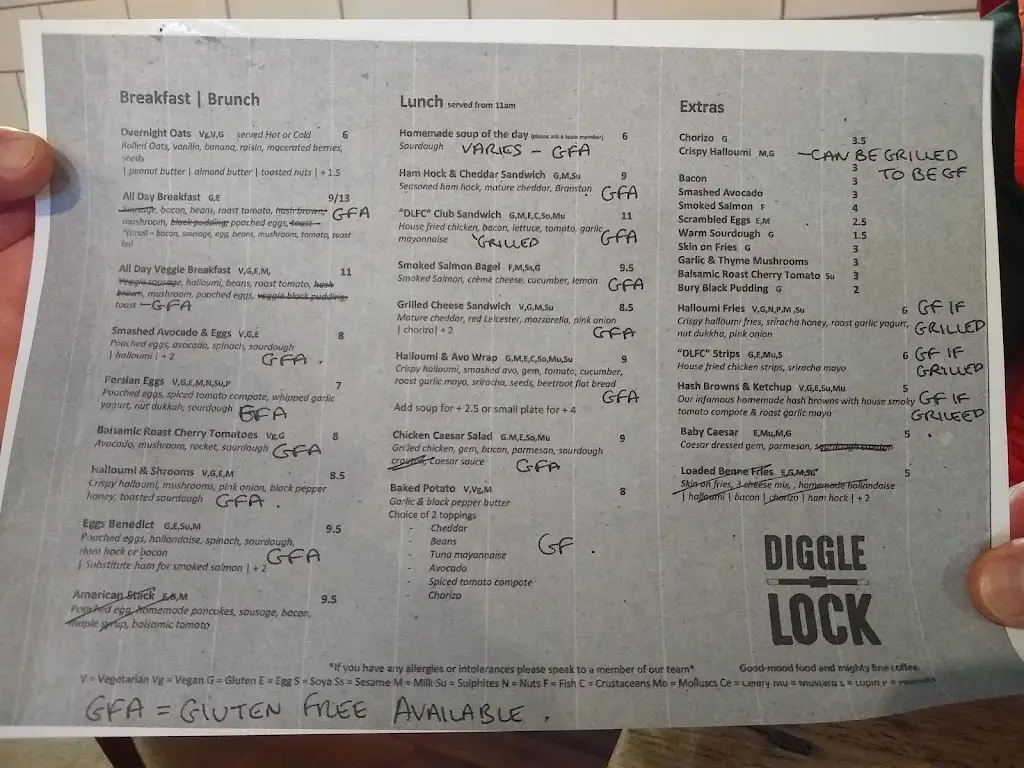 Breakfast | Brunch
Overnight Oats Vg,V,G served Hot or Cold 6
Rolled Oats, vanilla, banana, raisin, macerated berries,
seeds
| peanut butter | almond butter | toasted nuts | + 1.5
All Day Breakfast G,E 9/13
Sausage, bacon, beans, roast tomato, hash brown, GFA
mushroom, black pudding, poached eggs, toast
*(small – bacon, sausage, egg, beans, mushroom, tomato, toast
All Day Veggie Breakfast V,G,E,M, 11
Veggie sausage, halloumi, beans, roast tomato, hash
brown, mushroom, poached eggs, veggie black pudding,
toast – GFA
Smashed Avocado & Eggs V,G,E 8
Poached eggs, avocado, spinach, sourdough
| halloumi | + 2 GFA .
Persian Eggs V,G,E,M,N,Su,P 7
Poached eggs, spiced tomato compote, whipped garlic
yogurt, nut dukkah, sourdough GFA
Balsamic Roast Cherry Tomatoes Vg,G 8
Avocado, mushroom, rocket, sourdough GFA
Halloumi & Shrooms V,G,E,M 8.5
Crispy halloumi, mushrooms, pink onion, black pepper
honey, toasted sourdough GFA .
Eggs Benedict G,E,Su,M 9.5
Poached eggs, hollandaise, spinach, sourdough,
Ham hock or bacon GFA
| Substitute ham for smoked salmon | + 2
American Stack E,G,M 9.5
Poached egg, homemade pancakes, sausage, bacon,
maple syrup, balsamic tomato
Lunch served from 11am
Homemade soup of the day (please ask a team member) 6
Sourdough VARIES – GFA
Ham Hock & Cheddar Sandwich G,M,Su 9
Seasoned ham hock, mature cheddar, Branston GFA
"DLFC" Club Sandwich G,M,E,C,So,Mu 11
House fried chicken, bacon, lettuce, tomato, garlic
mayonnaise GRILLED GFA
Smoked Salmon Bagel F,M,Ss,G 9.5
Smoked Salmon, crème cheese, cucumber, lemon GFA
Grilled Cheese Sandwich V,G,M,Su 8.5
Mature cheddar, red Leicester, mozzarella, pink onion
| chorizo| + 2 GFA
Halloumi & Avo Wrap G,M,E,C,So,Mu,Su 9
Crispy halloumi, smashed avo, gem, tomato, cucumber,
roast garlic mayo, sriracha, seeds, beetroot flat bread
GFA
Add soup for + 2.5 or small plate for + 4
Chicken Caesar Salad G,M,E,So,Mu 9
Grilled chicken, gem, bacon, parmesan, sourdough
crouton, Caesar sauce GFA
Baked Potato V,Vg,M 8
Garlic & black pepper butter
Choice of 2 toppings
- Cheddar
- Beans
- Tuna mayonnaise
- Avocado
- Spiced tomato compote
- Chorizo
GF .
Extras
Chorizo G 3.5
Crispy Halloumi M,G – CAN BE GRILLED
3 TO BE GF
Bacon 3
Smashed Avocado 3
Smoked Salmon F 4
Scrambled Eggs E,M 2.5
Warm Sourdough G 1.5
Skin on Fries G 3
Garlic & Thyme Mushrooms 3
Balsamic Roast Cherry Tomato Su 3
Bury Black Pudding G 2
Halloumi Fries V,G,N,P,M ,Su 6 GF IF
Crispy halloumi fries, sriracha honey, roast garlic yogurt, GRILLED
nut dukkha, pink onion
"DLFC" Strips G,E,Mu,S 6 GF IF
House fried chicken strips, sriracha mayo GRILLED
Hash Browns & Ketchup V,G,E,Su,Mu 5
Our infamous homemade hash browns with house smoky GF IF
tomato compote & roast garlic mayo GRILLED
Baby Caesar E,Mu,M,G 5 .
Caesar dressed gem, parmesan, sourdough crouton
Loaded Benne Fries E,G,M,Su 5
Skin on fries, 3 cheese mix, , homemade hollandaise
| halloumi | bacon | chorizo | ham hock | + 2
DIGGLE
LOCK
*If you have any allergies or intolerances please speak to a member of our team*
Good-mood food and mighty fine coffee.
V = Vegetarian Vg = Vegan G = Gluten E = Egg S = Soya Ss = Sesame M = Milk Su = Sulphites N = Nuts F = Fish C = Crustaceans Mo = Molluscs Ce = Celery Mu = Mustard L = Lupin P = Peanuts
GFA = GLUTEN FREE AVAILABLE .